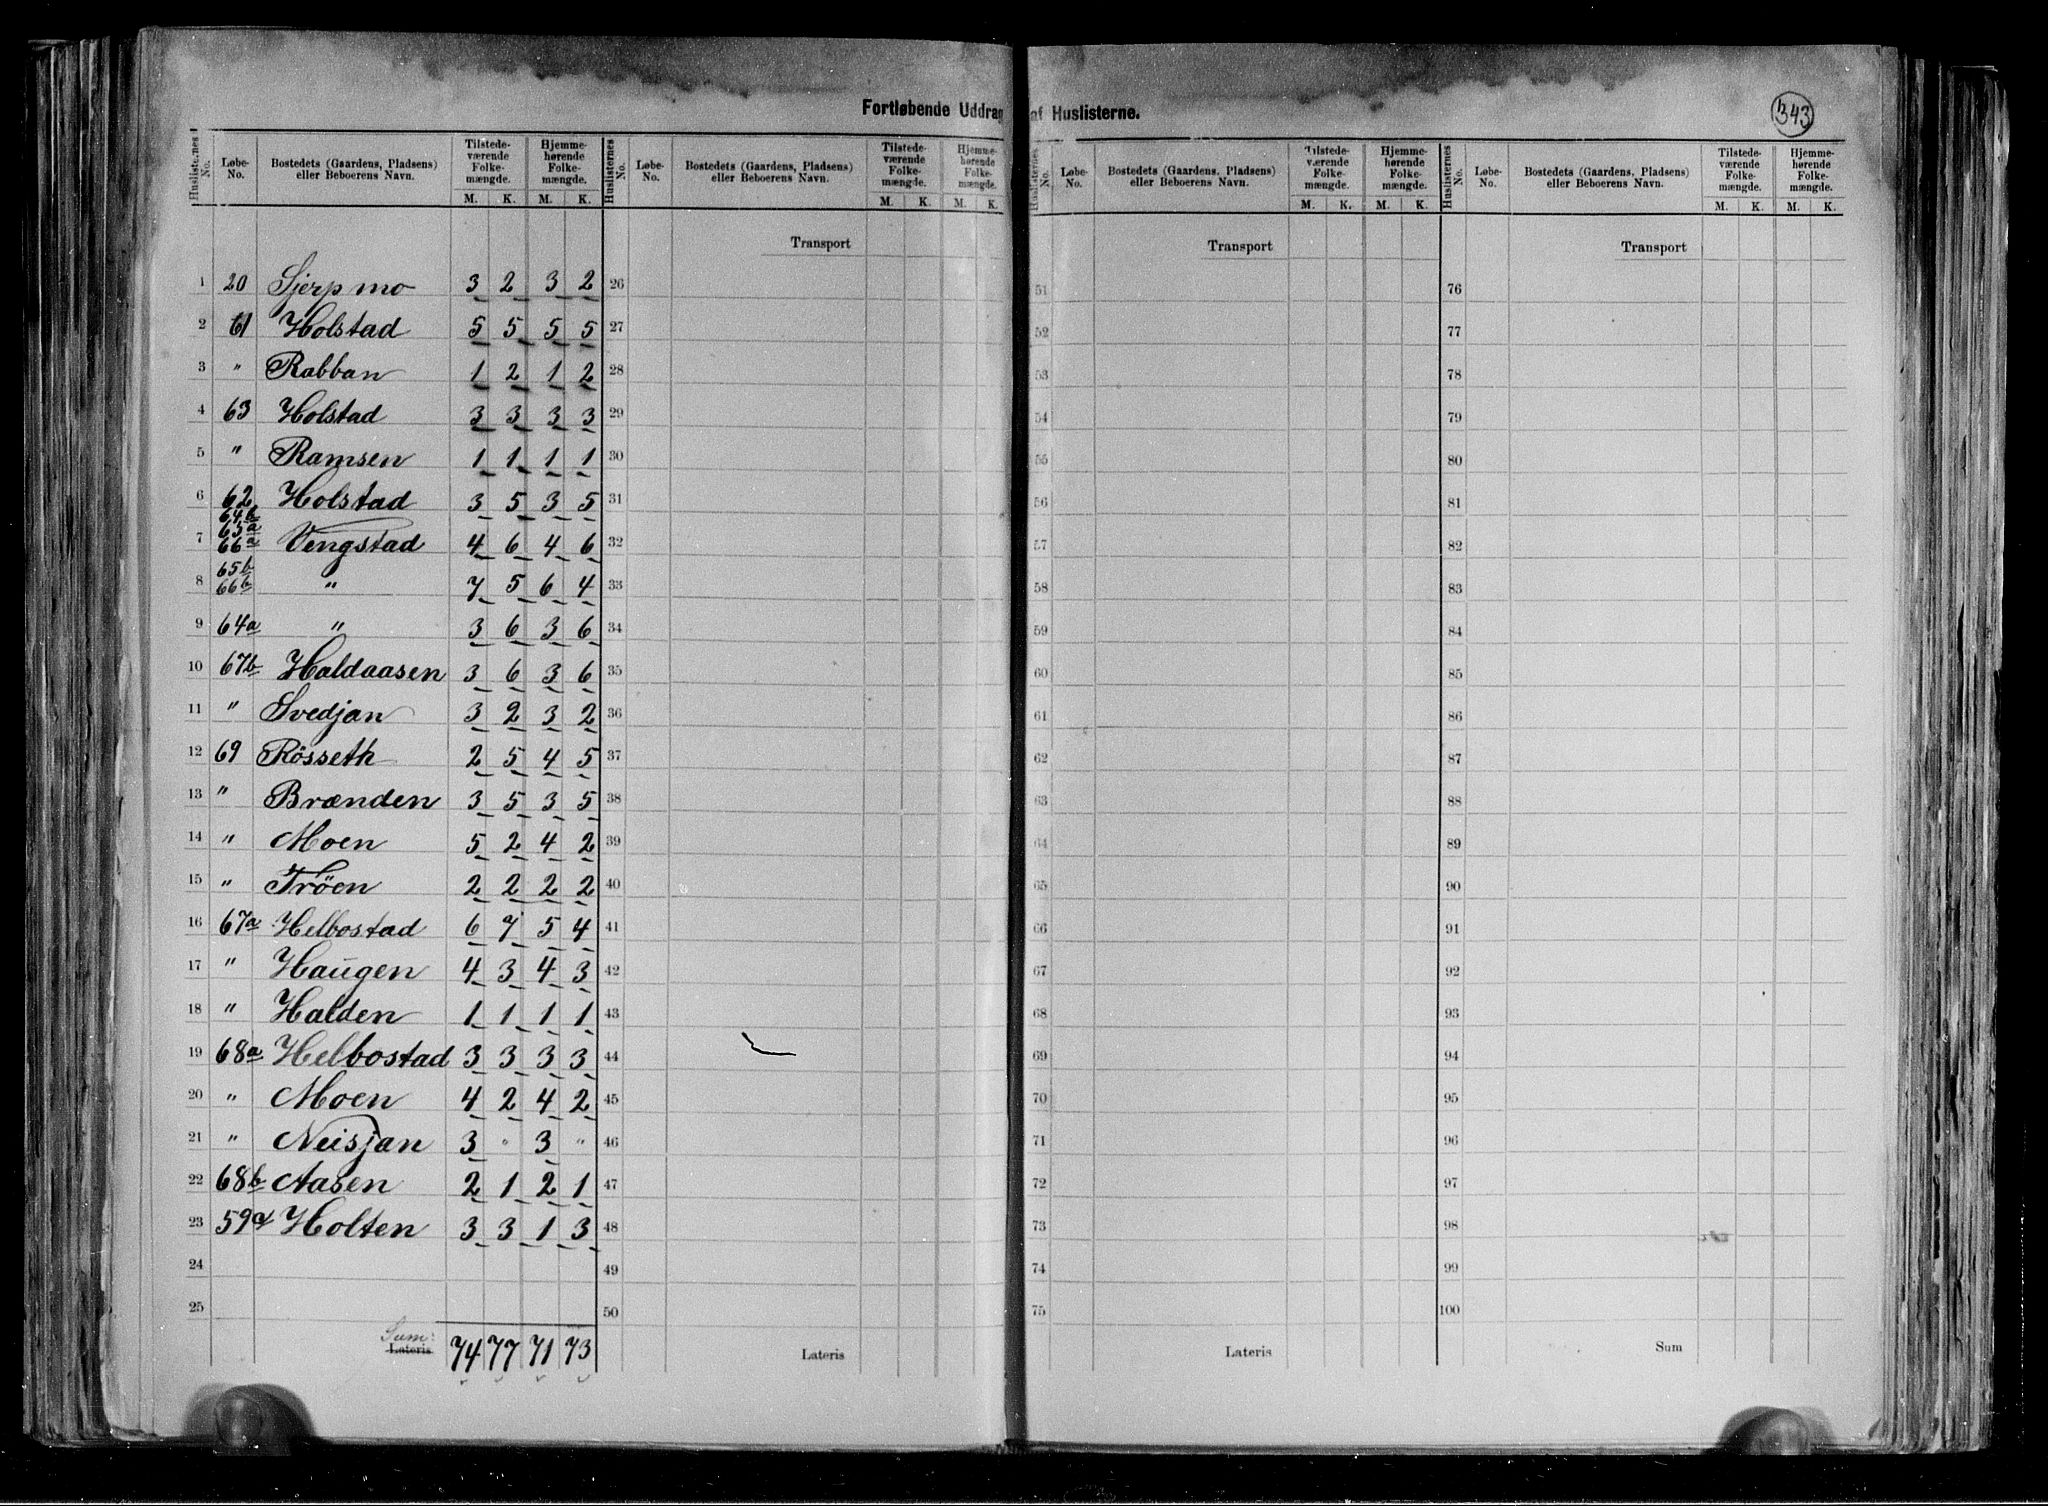 Fortløbende Uddrag af Huslisterne.
343
Huslisternes No. Løbe-No. Bostedets (Gaardens, Pladsens) eller Beboerens Navn. Tilstedeværende Folkemængde. M. K. Hjemmehørende Folkemængde. M. K.
1 20 Sjerpmo 3 2 3 2
2 61 Holstad 5 5 5 5
3 " Rabban 1 2 1 2
4 63 Holstad 3 3 3 3
5 " Ramsen 1 1 1 1
6 62 Holstad 3 5 3 5
7 64b 65a 66a Vengstad 4 6 4 6
8 65b 66b " 7 5 6 4
9 64a " 3 6 3 6
10 67b Haldaasen 3 6 3 6
11 " Svedjan 3 2 3 2
12 69 Rösseth 2 5 4 5
13 " Brænden 3 5 3 5
14 " Moen 5 2 4 2
15 " Tröen 2 2 2 2
16 67a Helbostad 6 7 5 4
17 " Haugen 4 3 4 3
18 " Halden 1 1 1 1
19 68a Helbostad 3 3 3 3
20 " Moen 4 2 4 2
21 " Neisjan 3 " 3 "
22 68b Aasen 2 1 2 1
23 59a Holten 3 3 1 3
24
25
Sum: Lateris 74 77 71 73
Huslisternes No. Løbe-No. Bostedets (Gaardens, Pladsens) eller Beboerens Navn. Tilstedeværende Folkemængde. M. K. Hjemmehørende Folkemængde. M. K.
Transport
26
27
28
29
30
31
32
33
34
35
36
37
38
39
40
41
42
43
44
45
46
47
48
49
50
Lateris
Huslisternes No. Løbe-No. Bostedets (Gaardens, Pladsens) eller Beboerens Navn. Tilstedeværende Folkemængde. M. K. Hjemmehørende Folkemængde. M. K.
Transport
51
52
53
54
55
56
57
58
59
60
61
62
63
64
65
66
67
68
69
70
71
72
73
74
75
Lateris
Huslisternes No. Løbe-No. Bostedets (Gaardens, Pladsens) eller Beboerens Navn. Tilstedeværende Folkemængde. M. K. Hjemmehørende Folkemængde. M. K.
Transport
76
77
78
79
80
81
82
83
84
85
86
87
88
89
90
91
92
93
94
95
96
97
98
99
100
Sum